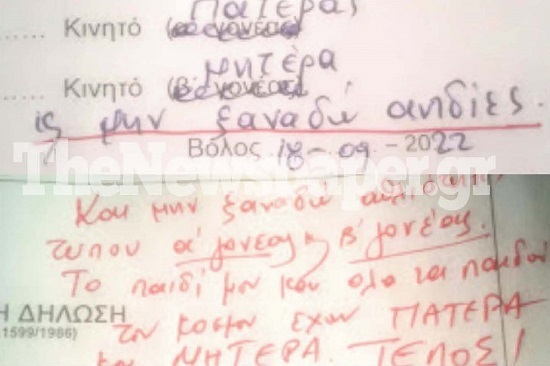 Πατέρας
..... Κινητό (α' γονέας)
μητέρα
..... Κινητό (β' γονέας)
ις μην ξαναδώ αηδίες.
Βόλος 18-09-2022
TheNewspaper.gr
Και μην ξαναδώ
τύπου α' γονέας ή β' γονέας.
Το παιδί μου και όλα τα παιδιά
Η ΔΗΛΩΣΗ
του κόσμου έχουν ΠΑΤΕΡΑ
1599/1986)
και ΜΗΤΕΡΑ. ΤΕΛΟΣ!